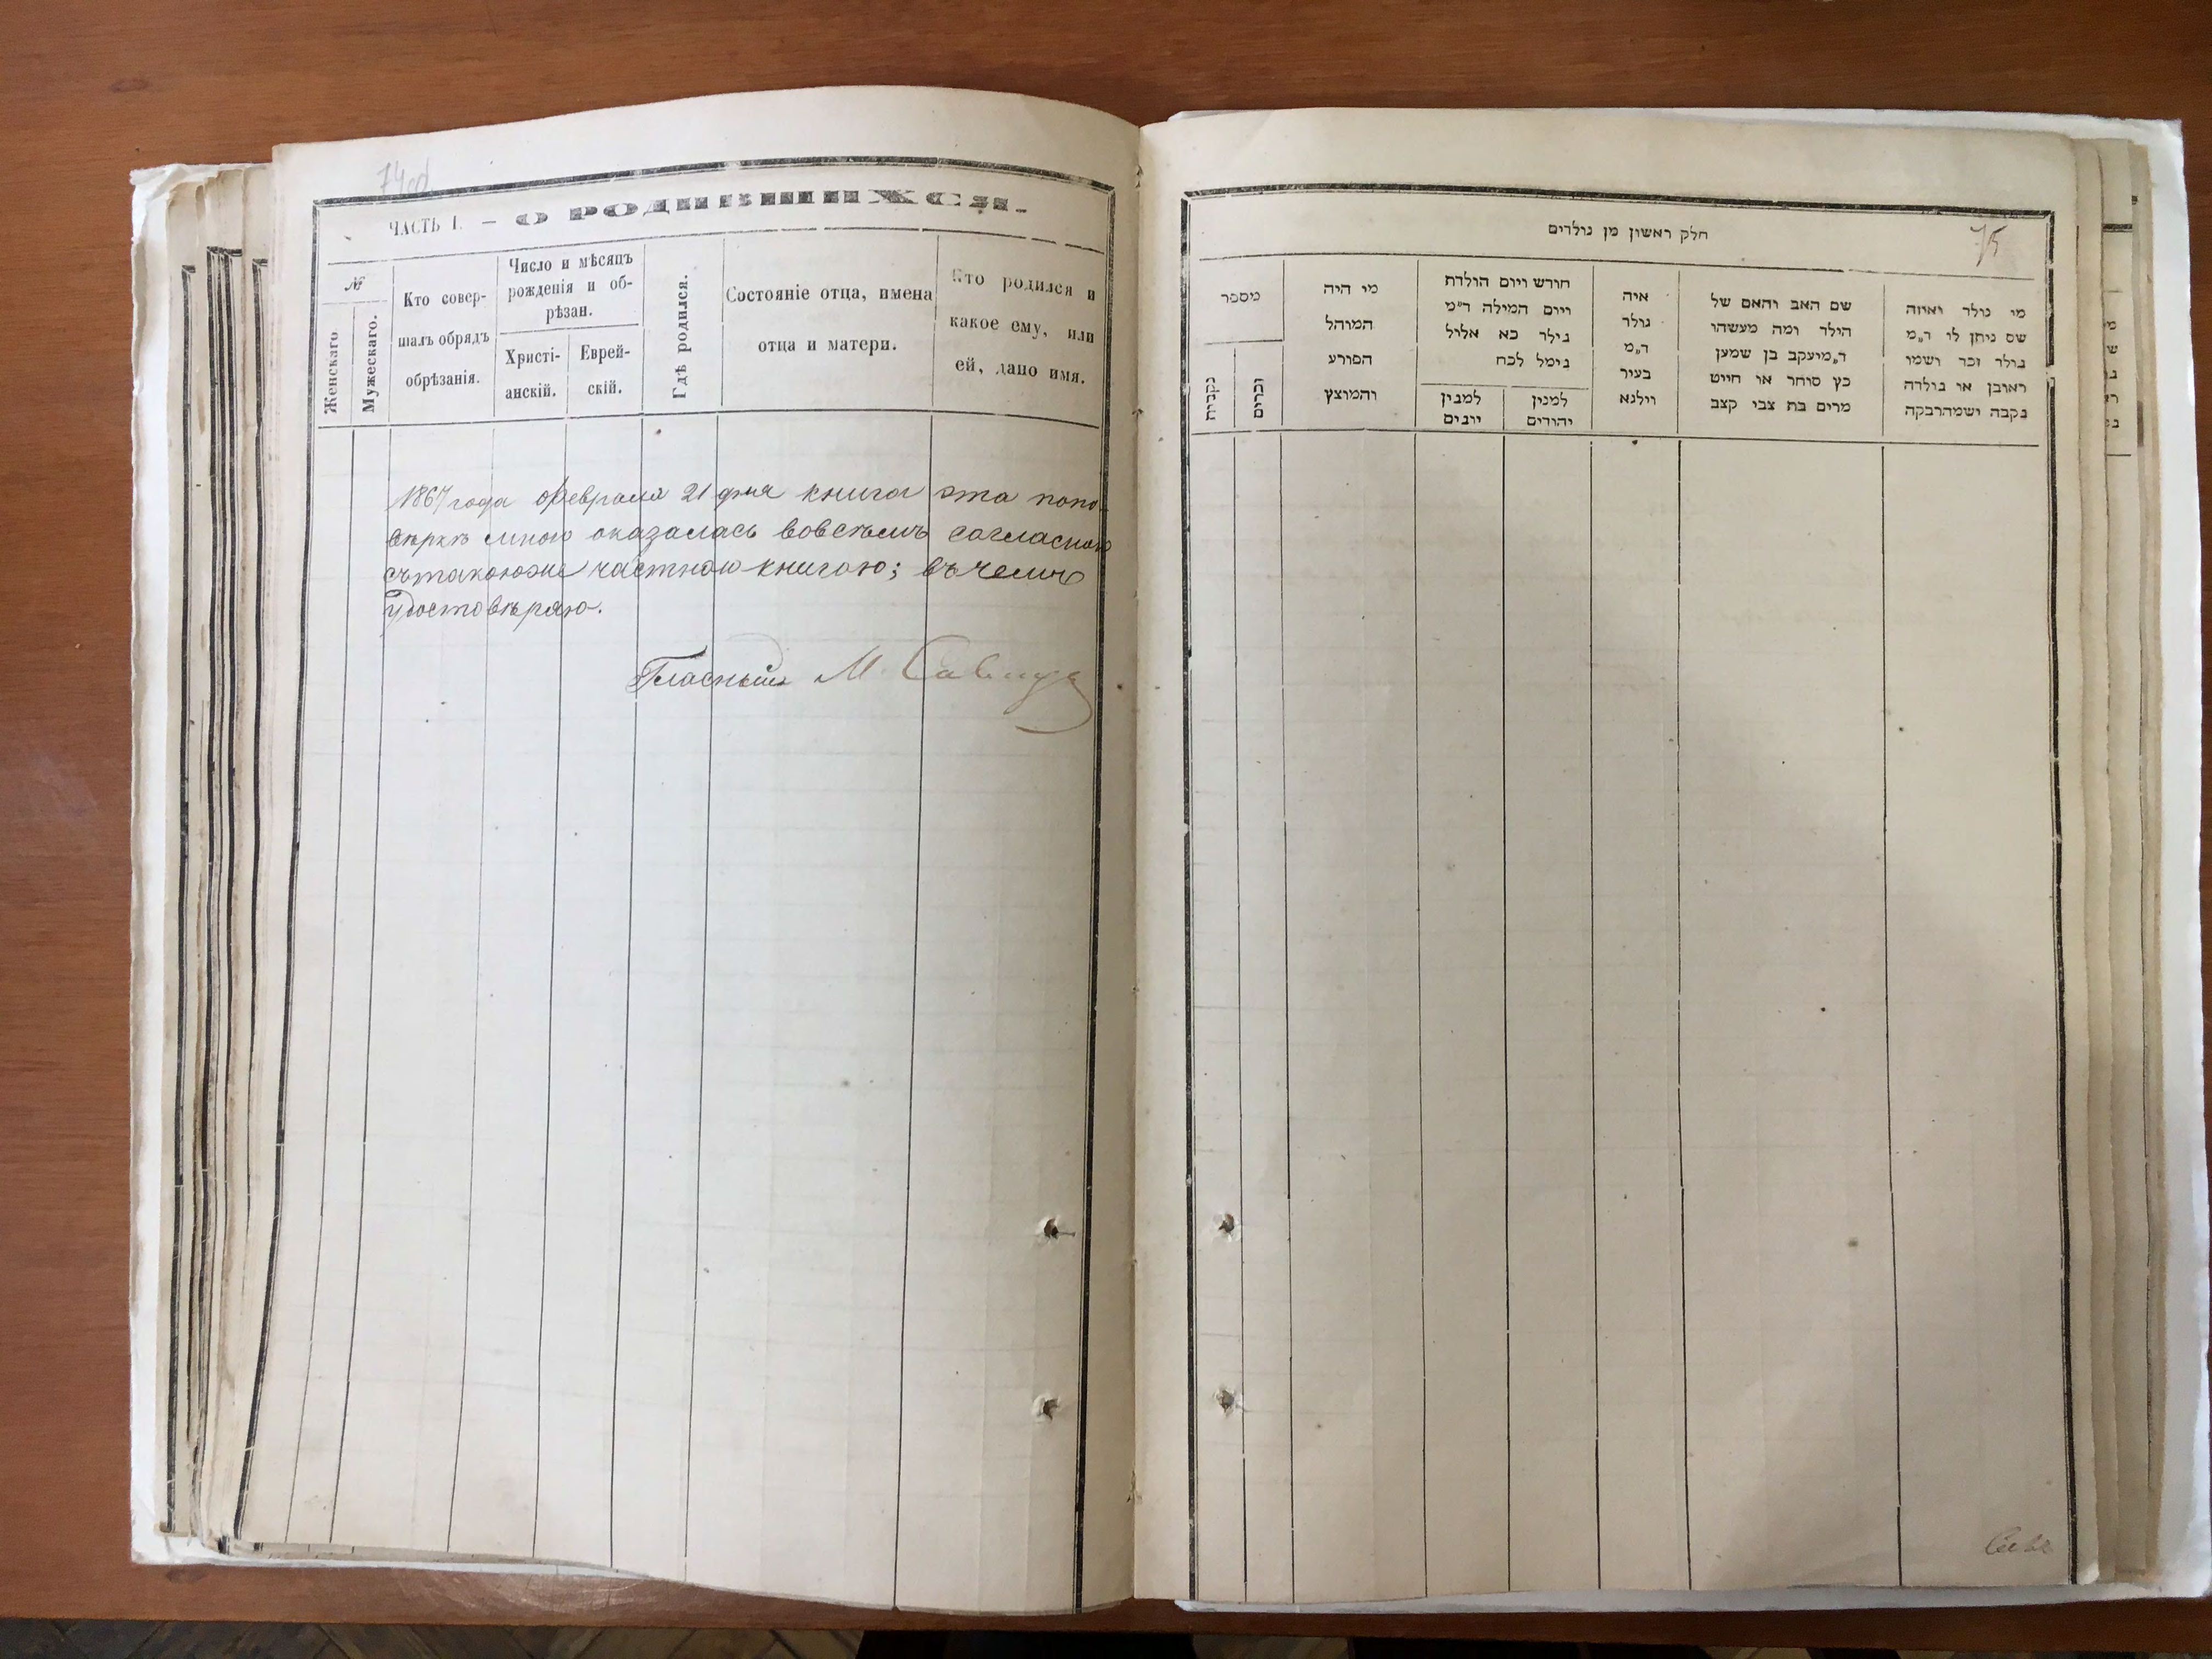 74об
ЧАСТЬ I. — О РОДИВШИХСЯ.
№
Женскаго
Мужескаго.
Кто совер-
шалъ обрядъ
обрѣзанія.
Число и мѣсяцъ
рожденія и об-
рѣзан.
Христі-
анскій.
Еврей-
скій.
Гдѣ родился.
Состояніе отца, имена
отца и матери.
Кто родился и
какое ему, или
ей, дано имя.
1867 года февраля 21 дня книга эта попо-
вѣркѣ мною оказалась вовсѣмъ согласною
съ такоюже частною книгою; въ чемъ
удостовѣряю.
Гласный М.
75
חלק ראשון מן נולדים
מספר
נקבות
זכרים
מי היה
המוהל
הפורע
והמוצץ
חודש ויום הולדת
ויום המילה ד״מ
נילד כא אלול
נימל לכח
למנין
יונים
למנין
יהודים
איה
נולד
ד״מ
בעיר
ווילנא
שם האב והאם של
הילד ומה מעשהו
ד״מ יעקב בן שמען
כץ סוחר או חייט
מרים בת צבי קצב
מי נולד ואיזה
שם ניתן לו ד״מ
נולד זכר ושמו
ראובן או נולדה
נקבה ושמה רבקה